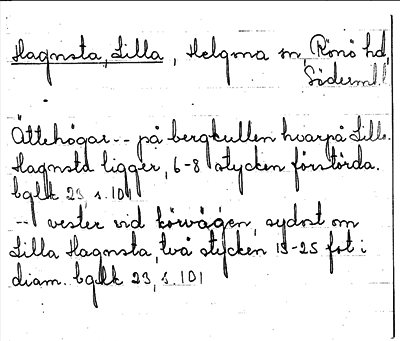 Hagnsta, Lilla, Helgona sn, Rönö hd,
Söderml
Ättehögar -- på bergkullen hvarpå Lilla
Hagnsta ligger, 6-8 stycken förstörda.
bglk 23, s. 101
-- vester vid körvägen, sydost om
Lilla Hagnsta, två stycken 15-25 fot i
diam. bglk 23, s. 101